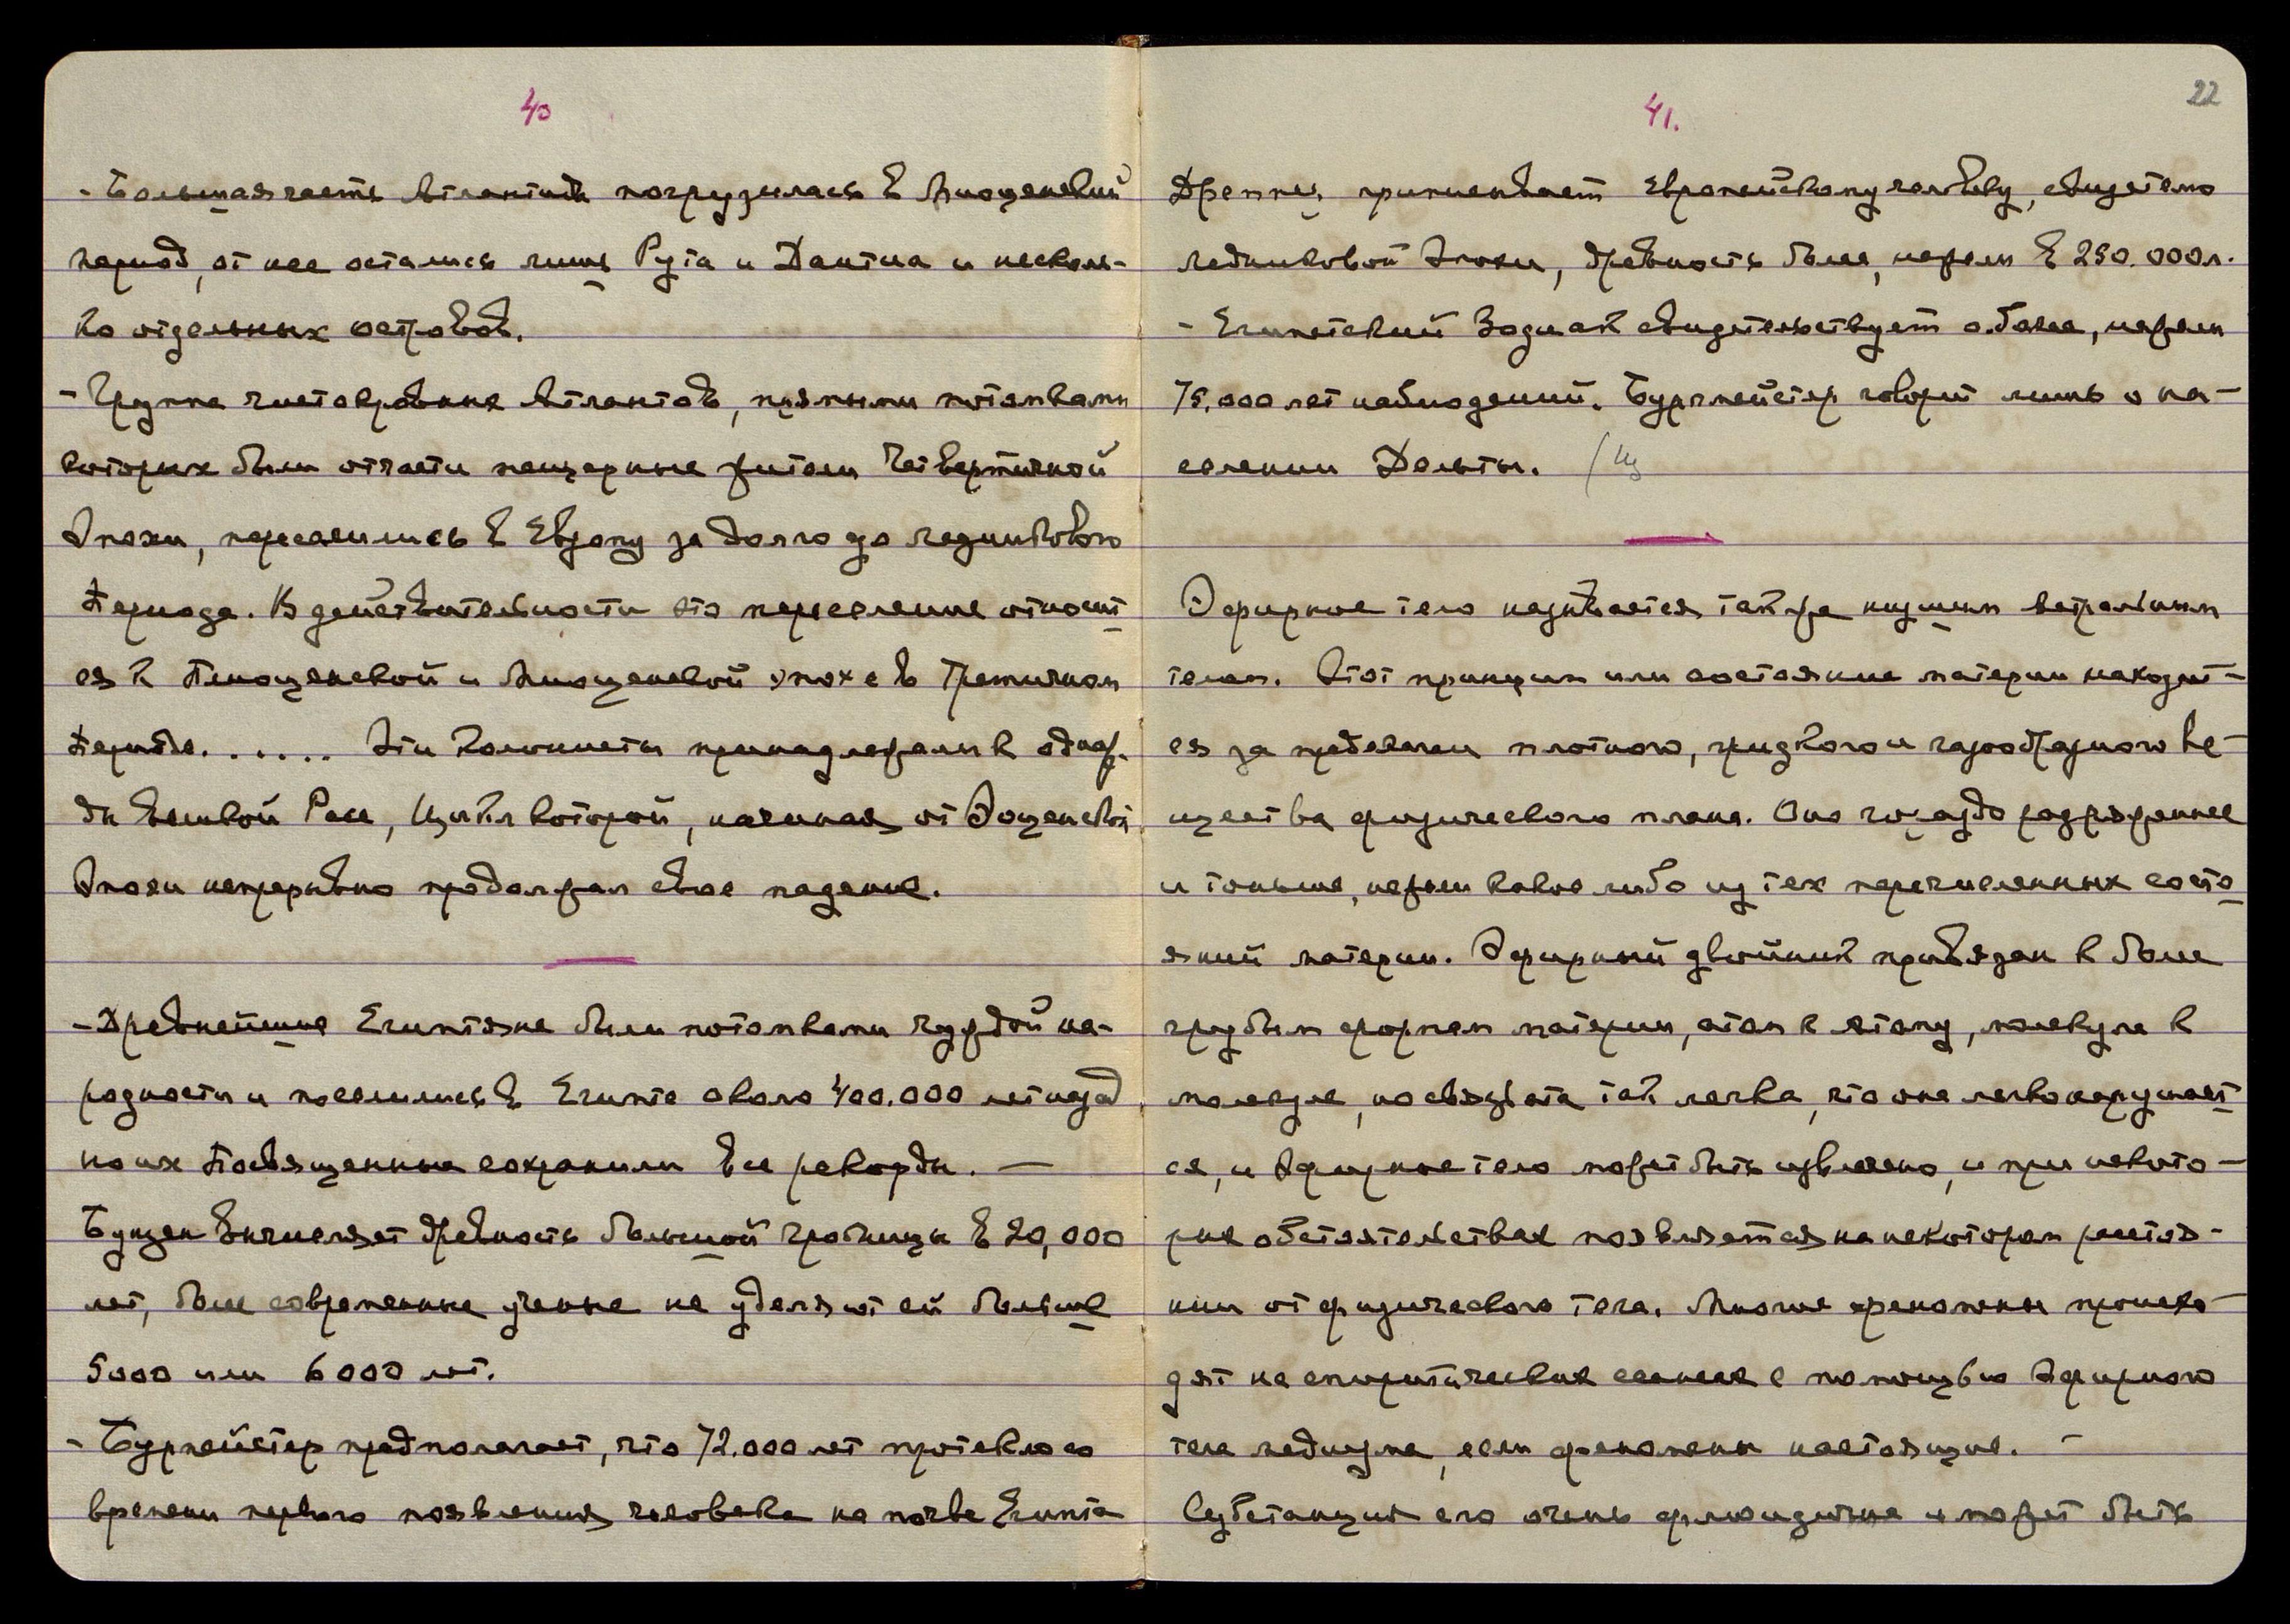 40
- Большая часть Атлантиды погрузилась в Миоценовый
период, от нее остались лишь Рута и Даитиа и несколь-
ко отдельных островов.
- Группа чистокровных Атлантов, прямыми потомками
которых были отчасти пещерные жители Четвертичной
Эпохи, переселились в Европу задолго до ледникового
Периода. В действительности это переселение относит
ся к Плиоценовой и Миоценовой эпохе в Третичном
Периоде. . . . . . Эти колонисты принадлежали к однаж-
ды великой Расе, Цикл которой, начиная от Эоценовой
Эпохи непрерывно продолжал свое падение.
- Древнейшие Египтяне были потомками чуждой на-
родности и поселились в Египте около 400.000 лет назад
но их Посвященные сохранили все рекорды. —
Бунзен вычисляет древность большой гробницы в 20,000
лет, более современные ученые не уделяют ей больше
5000 или 6000 лет.
- Бурмейстер предполагает, что 72.000 лет протекло со
времени первого появления человека на почве Египта
41.
22
Дреппер приписывает Европейскому человеку, свидетелю
ледниковой Эпохи, древность более, нежели в 250.000 л.
- Египетский Зодиак свидетельствует о более, нежели
75.000 лет наблюдений. Бурмейстер говорит лишь о на-
селении Дельты. (Из
Эфирное тело называется также низшим астральным
телом. Этот принцип или состояние материи находит-
ся за пределами плотного, жидкого и газообразного ве-
щества физического плана. Оно гораздо разряженнее
и тоньше, нежели какое либо из тех перечисленных состо
яний материи. Эфирный двойник привязан к более
грубым формам материи, атом к атому, молекула к
молекуле, но связь эта так легка, что она легко нарушает
ся, и Эфирное тело может быть извлечено, и при некото-
рых обстоятельствах появляется на некотором растоя-
нии от физического тела. Многие феномены происхо-
дят на спиритических сеансах с помощью Эфирного
тела медиума, если феномены настоящие. —
Субстанция его очень флюидична и может быть